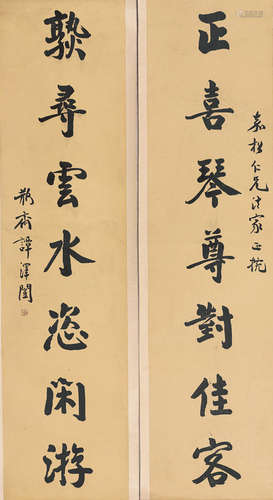 嘉松仁兄法家正挽
正喜琴尊對佳客
孰尋雲水恣閑游
瓶齋譚澤闓